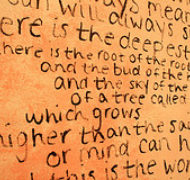 can will always mean
will always s
ere is the deepes
here is the root of the root
and the bud of the
and the sky of the
of a tree called
which grows
higher than the
or mind can h
this is the wo